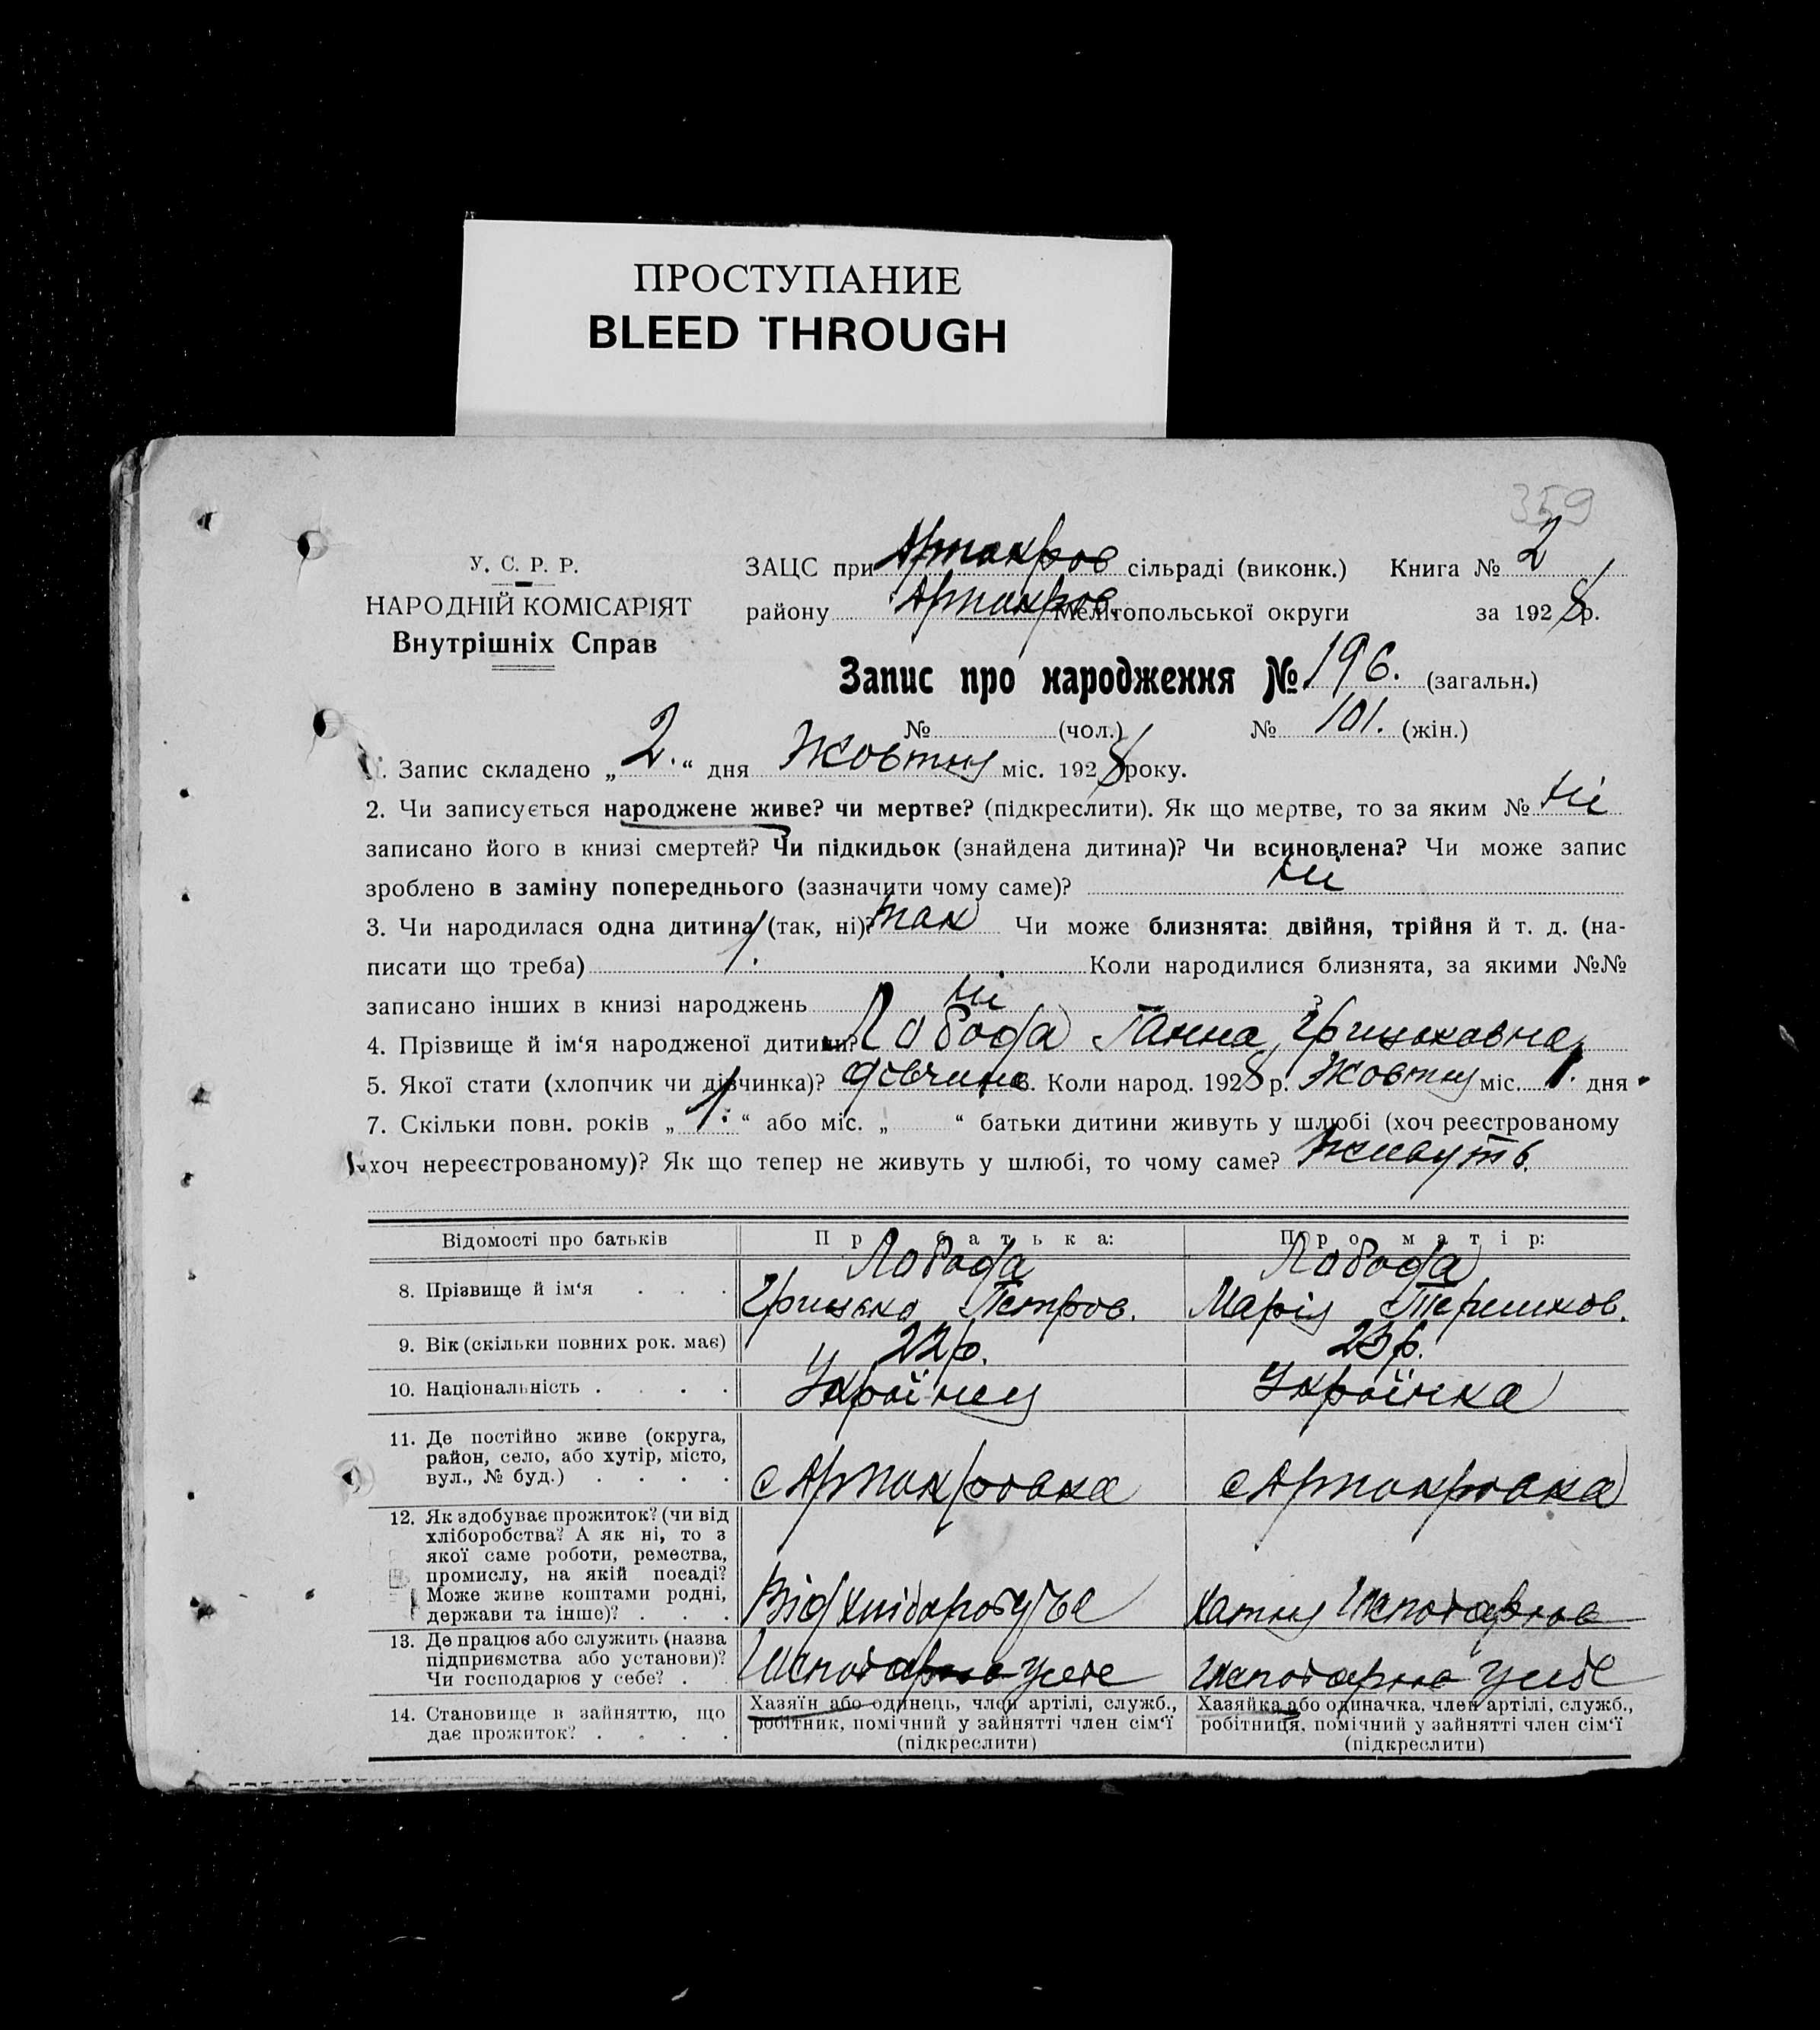 ПРОСТУПАНИЕ
BLEED THROUGH
359
У. С. Р. Р.
НАРОДНІЙ КОМІСАРІЯТ
Внутрішніх Справ
ЗАЦС при сільраді (виконк.) Книга № 2
району Мелітопольської округи за 1928 р.
Запис про народження № 196. (загальн.)
№ (чол.) № 101. (жін.)
1. Запис складено „2.“ дня Жовтня міс. 1928 року.
2. Чи записується народжене живе? чи мертве? (підкреслити). Як що мертве, то за яким № ні
записано його в книзі смертей? Чи підкидьок (знайдена дитина)? Чи всиновлена? Чи може запис
зроблено в заміну попереднього (зазначити чому саме)? ні
3. Чи народилася одна дитина (так, ні)? так Чи може близнята: двійня, трійня й т. д. (на-
писати що треба) Коли народилися близнята, за якими №№
записано інших в книзі народжень ні ?
4. Прізвище й ім‘я народженої дитини? Лобода Ганна Грицьковна
5. Якої стати (хлопчик чи дівчинка)? дівчина 6. Коли народ. 1928 р. Жовтня міс. 1. дня
7. Скільки повн. років „1.“ або міс. „ “ батьки дитини живуть у шлюбі (хоч реєстрованому
хоч нереєстрованому)? Як що тепер не живуть у шлюбі, то чому саме? живуть.
Відомості про батьків
Про батька:
Про матір:
8. Прізвище й ім‘я . . .
Лобода
Грицько Петров.
Лобода
Марія Терешков.
9. Вік (скільки повних рок. має)
22 р.
23 р.
10. Національність . . . .
Українец
Українка
11. Де постійно живе (округа,
район, село, або хутір, місто,
вул., № буд.) . . . .
12. Як здобуває прожиток? (чи від
хліборобства? А як ні, то з
якої саме роботи, ремества,
промислу, на якій посаді?
Може живе коштами родні,
держави та інше)? . . .
Від
хатня
13. Де працює або служить (назва
підприємства або установи)?
Чи господарює у себе? . .
14. Становище в зайняттю, що
дає прожиток? . . . .
Хазяїн або одинець, член артілі, служб.,
робітник, помічний у зайнятті член сім‘ї
(підкреслити)
Хазяйка або одиначка, член артілі, служб.,
робітниця, помічний у зайнятті член сім‘ї
(підкреслити)